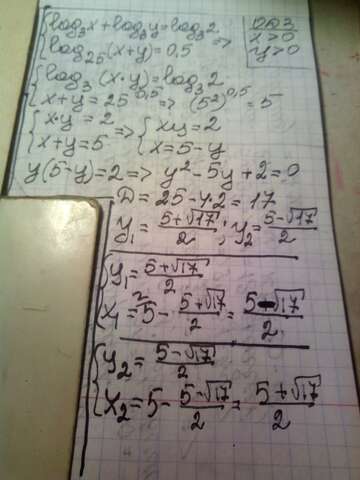 { log₃x + log₃y = log₃2
{ log₂₅(x+y) = 0,5 =>
ОДЗ
x > 0
y > 0
{ log₃(x·y) = log₃2
{ x+y = 25^0,5 => (5²)^0,5 = 5
{ x·y = 2 => { xy = 2
{ x+y = 5 { x = 5 - y
y(5-y) = 2 => y² - 5y + 2 = 0
D = 25 - 4·2 = 17
y₁ = (5+√17)/2 ; y₂ = (5-√17)/2
{ y₁ = (5+√17)/2
{ x₁ = 5 - (5+√17)/2 = (5-√17)/2
{ y₂ = (5-√17)/2
{ x₂ = 5 - (5-√17)/2 = (5+√17)/2